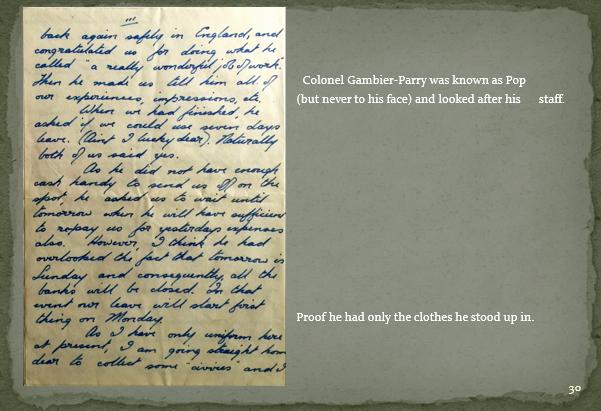 III
back again safely in England, and
congratulated us for doing what he
called "a really wonderful job of work".
Then he made us tell him all of
our experiences, impressions, etc.
When we had finished, he
asked if we could use seven days
leave. (Aint I lucky dear). Naturally
both of us said yes.
As he did not have enough
cash handy to send us off on the
spot, he asked us to wait until
tomorrow when he will have sufficient
to repay us for yesterdays expenses
also. However, I think he had
overlooked the fact that tomorrow is
Sunday and consequently, all the
banks will be closed. In that
event our leave will start first
thing on Monday.
As I have only uniform here
at present, I am going straight home
dear to collect some "civvies" and I
Colonel Gambier-Parry was known as Pop
(but never to his face) and looked after his staff.
Proof he had only the clothes he stood up in.
30